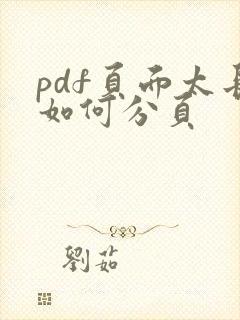 pdf頁而太長
如何分頁
劉茹